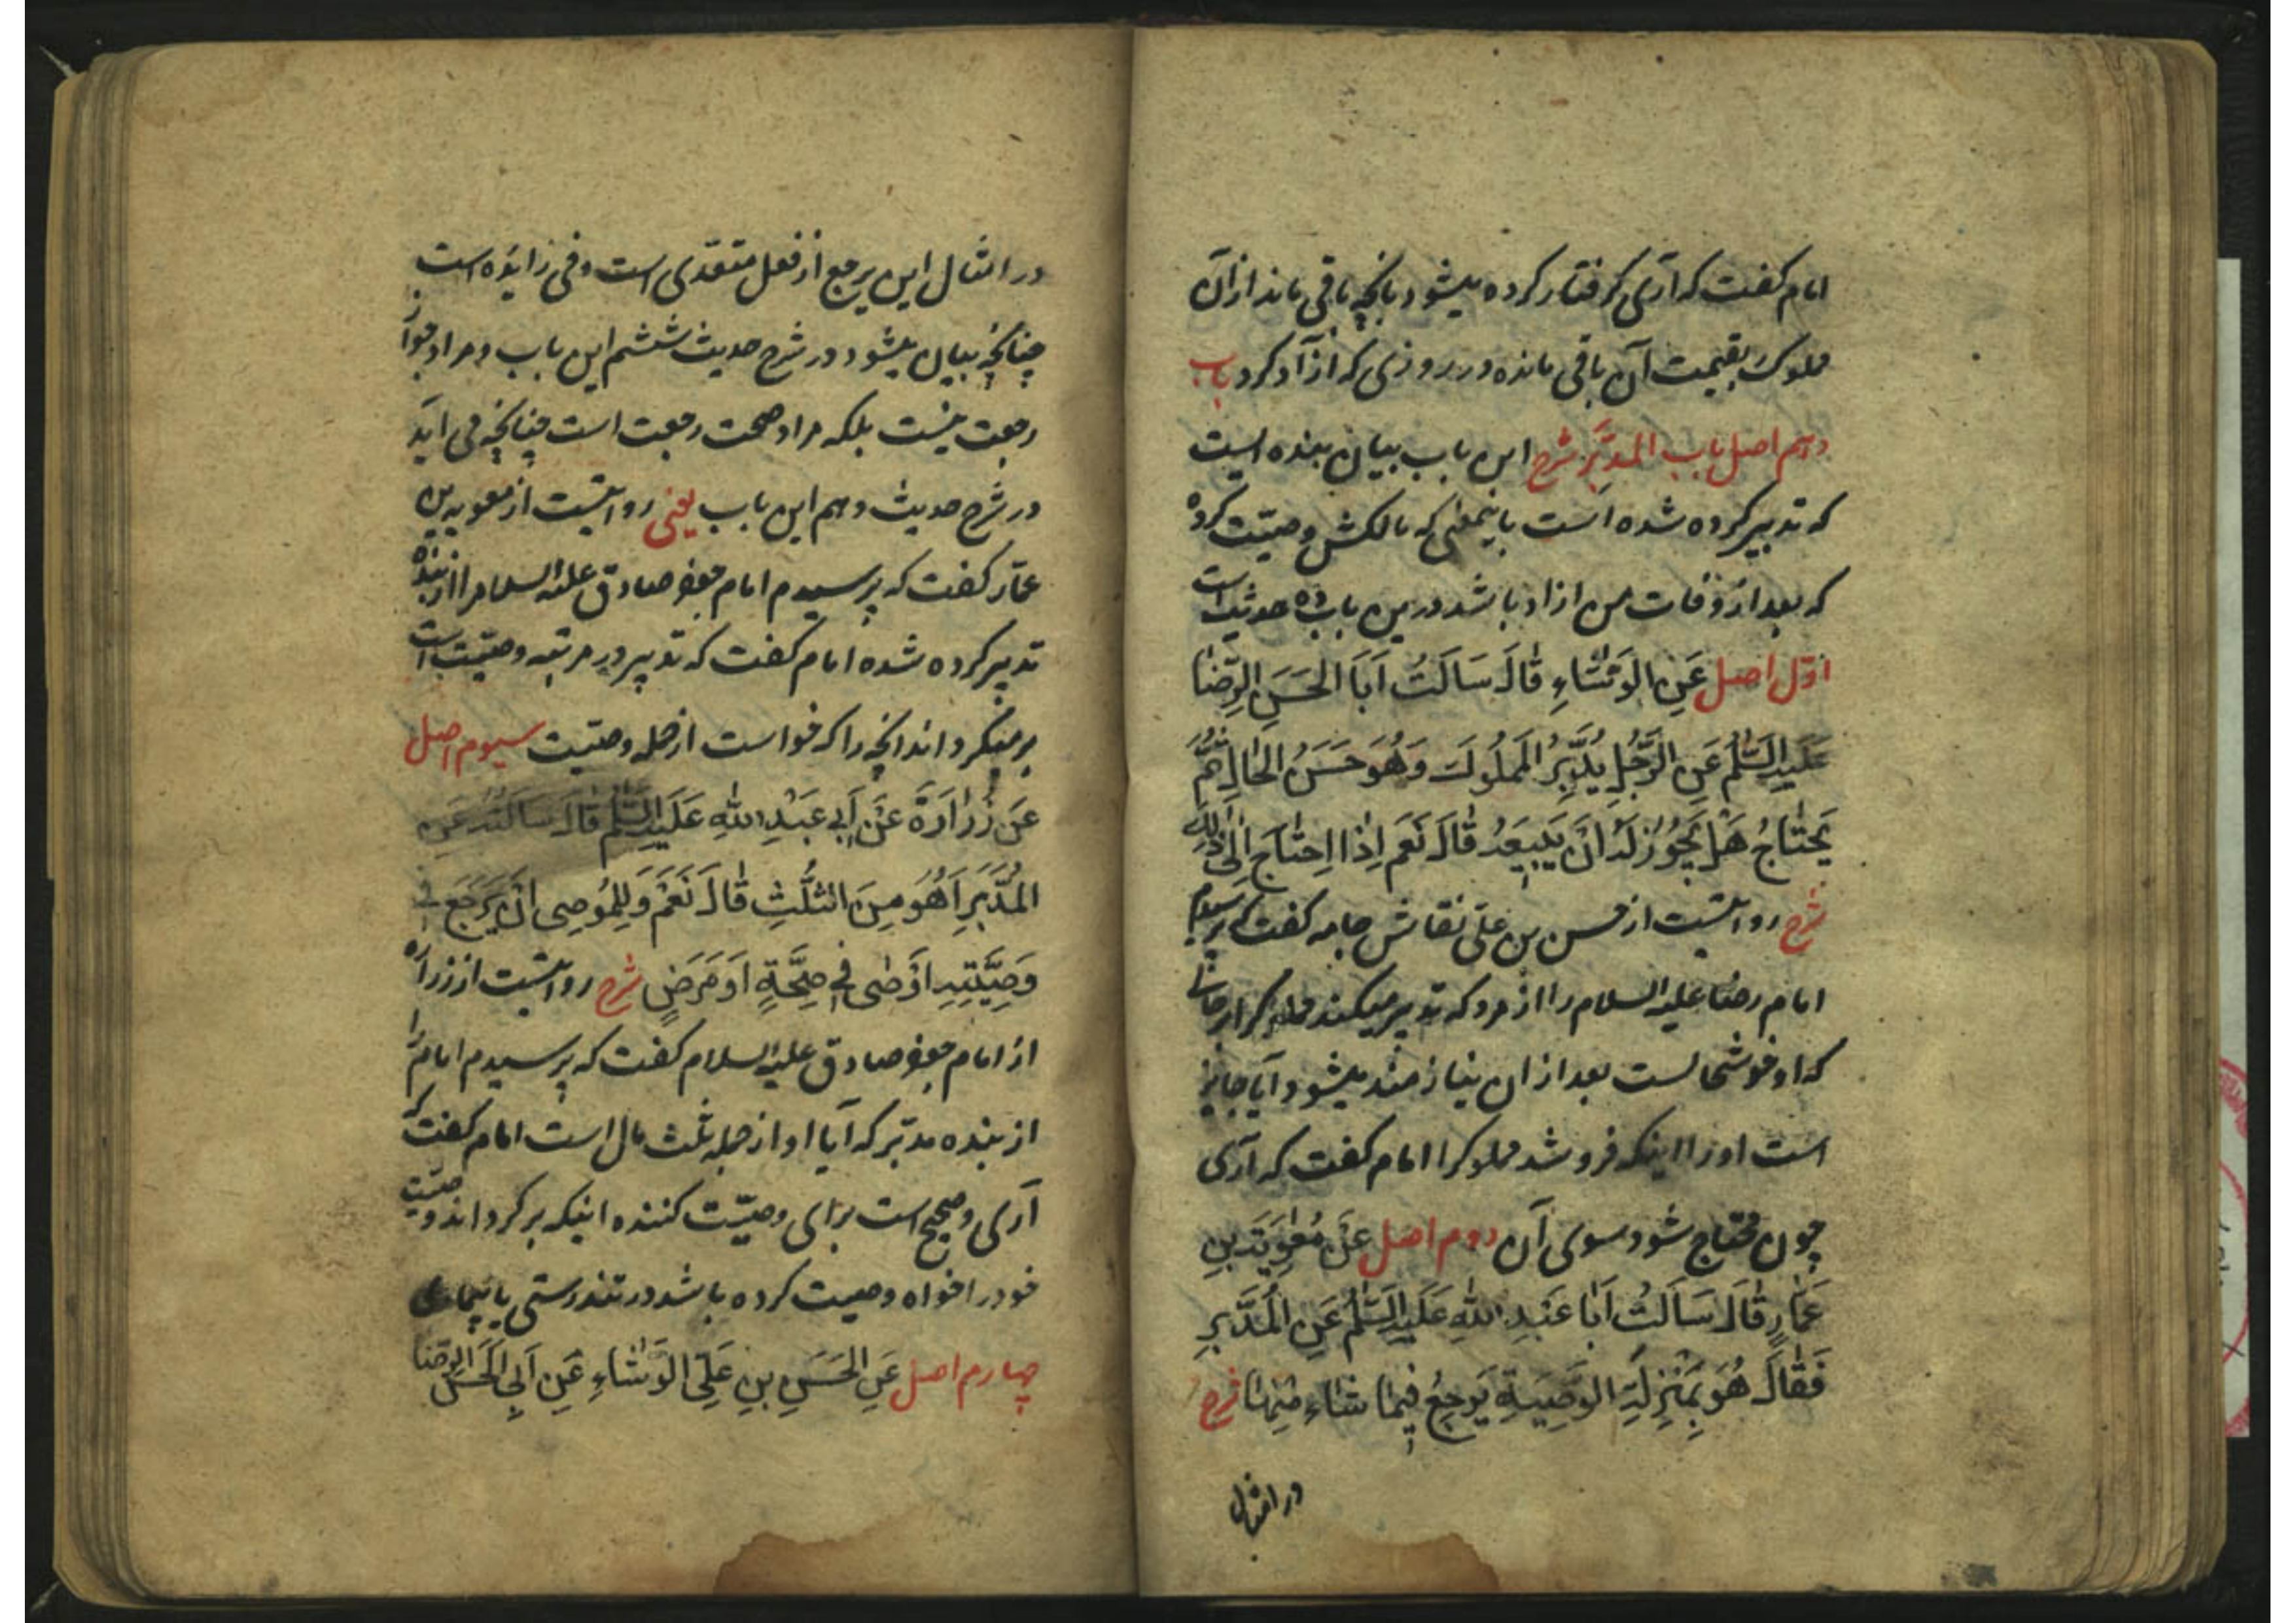 امام کفت که آری کرفتار کرده میشود بانچه باقی ماند ازان
مملوک بقیمت آن باقی مانده در روزی که آزاد کرد باب
دهم اصل باب المدبَّر شرح این باب بیان بنده است
که تدبیر کرده شده است باینمعنی که مالکش وصیّت کرده
که بعد از وفات من ازاد باشد درین باب ده حدیث است
اوّل اصل عَنِ الوَشّاءِ قالَ سَاَلتُ اَبَا الحَسَنِ الرِّضا
عَلَیهِ السَّلٰمُ عَنِ الرَّجُلِ یُدَبِّرُ المَملُوکَ وَهُوَ حَسَنُ الحٰالِ ثُمَّ
یَحتٰاجُ هَل یَجُوزُ لَهُ اَن یَبِیعَهُ قٰالَ نَعَم اِذا اِحتٰاجَ اِلیٰ ذٰلِکَ
شرح روایتست از حسن بن علی نقاش جامه کفت که پرسیدم
امام رضا علیه السلام را از مرد که تدبیر میکند مملوکرا در حالتی
که او خوشحالست بعد ازان نیازمند میشود آیا جایز
است اورا اینکه فروشد مملوکرا امام کفت که آری
چون محتاج شود سوی آن دوم اصل عَن مُعٰوِیَةَ بنِ
عَمّارٍ قٰالَ سَاَلتُ اَبا عَبدِ اللّٰهِ عَلَیهِ السَّلٰمُ عَنِ المُدَبَّرِ
فَقٰالَ هُوَ بِمَنزِلَةِ الوَصِیَّةِ یَرجِعُ فِیما شاءَ مِنهٰا شرح
در امثال
در امثال این یرجع از فعل متعّدی است و فی زایده است
چنانچه بیان میشود در شرح حدیث ششم این باب و مراد جواز
رجعت نیست بلکه مراد صحت رجعت است چنانچه می آید
در شرح حدیث دهم این باب یعنی روایتست از معویه بن
عمّار کفت که پرسیدم امام جعفر صادق علیه السلام را از بنده
تدبیر کرده شده امام کفت که تدبیر در مرتبه وصیّت است
برمیکرداند انچه را که خواست از جمله وصیّت سیوم اصل
عَن زُرٰارَةَ عَن اَبِی عَبدِ اللّٰهِ عَلَیهِ السَّلٰمُ قٰالَ سَاَلتُهُ عَنِ
المُدَبَّرِ اَهُوَ مِنَ الثُّلُثِ قٰالَ نَعَم وَلِلمُوصِی اَن یَرجِعَ فِی
وَصِیَّتِهِ اَوصٰی فِی صِحَّةٍ اَو مَرَضٍ شرح روایتست از زراره
از امام جعفر صادق علیه السلام کفت که پرسیدم امام را
از بنده مدبّر که آیا او از جمله ثلث مال است امام کفت که
آری و صحیح است برای وصیّت کننده اینکه برکرداند وصیّت
خودرا خواه وصیت کرده باشد در تندرستی یا بیماری
چهارم اصل عَنِ الحَسَنِ بنِ عَلِیٍّ الوَشّاءِ عَن اَبِی الحَسَنِ الرِّضا